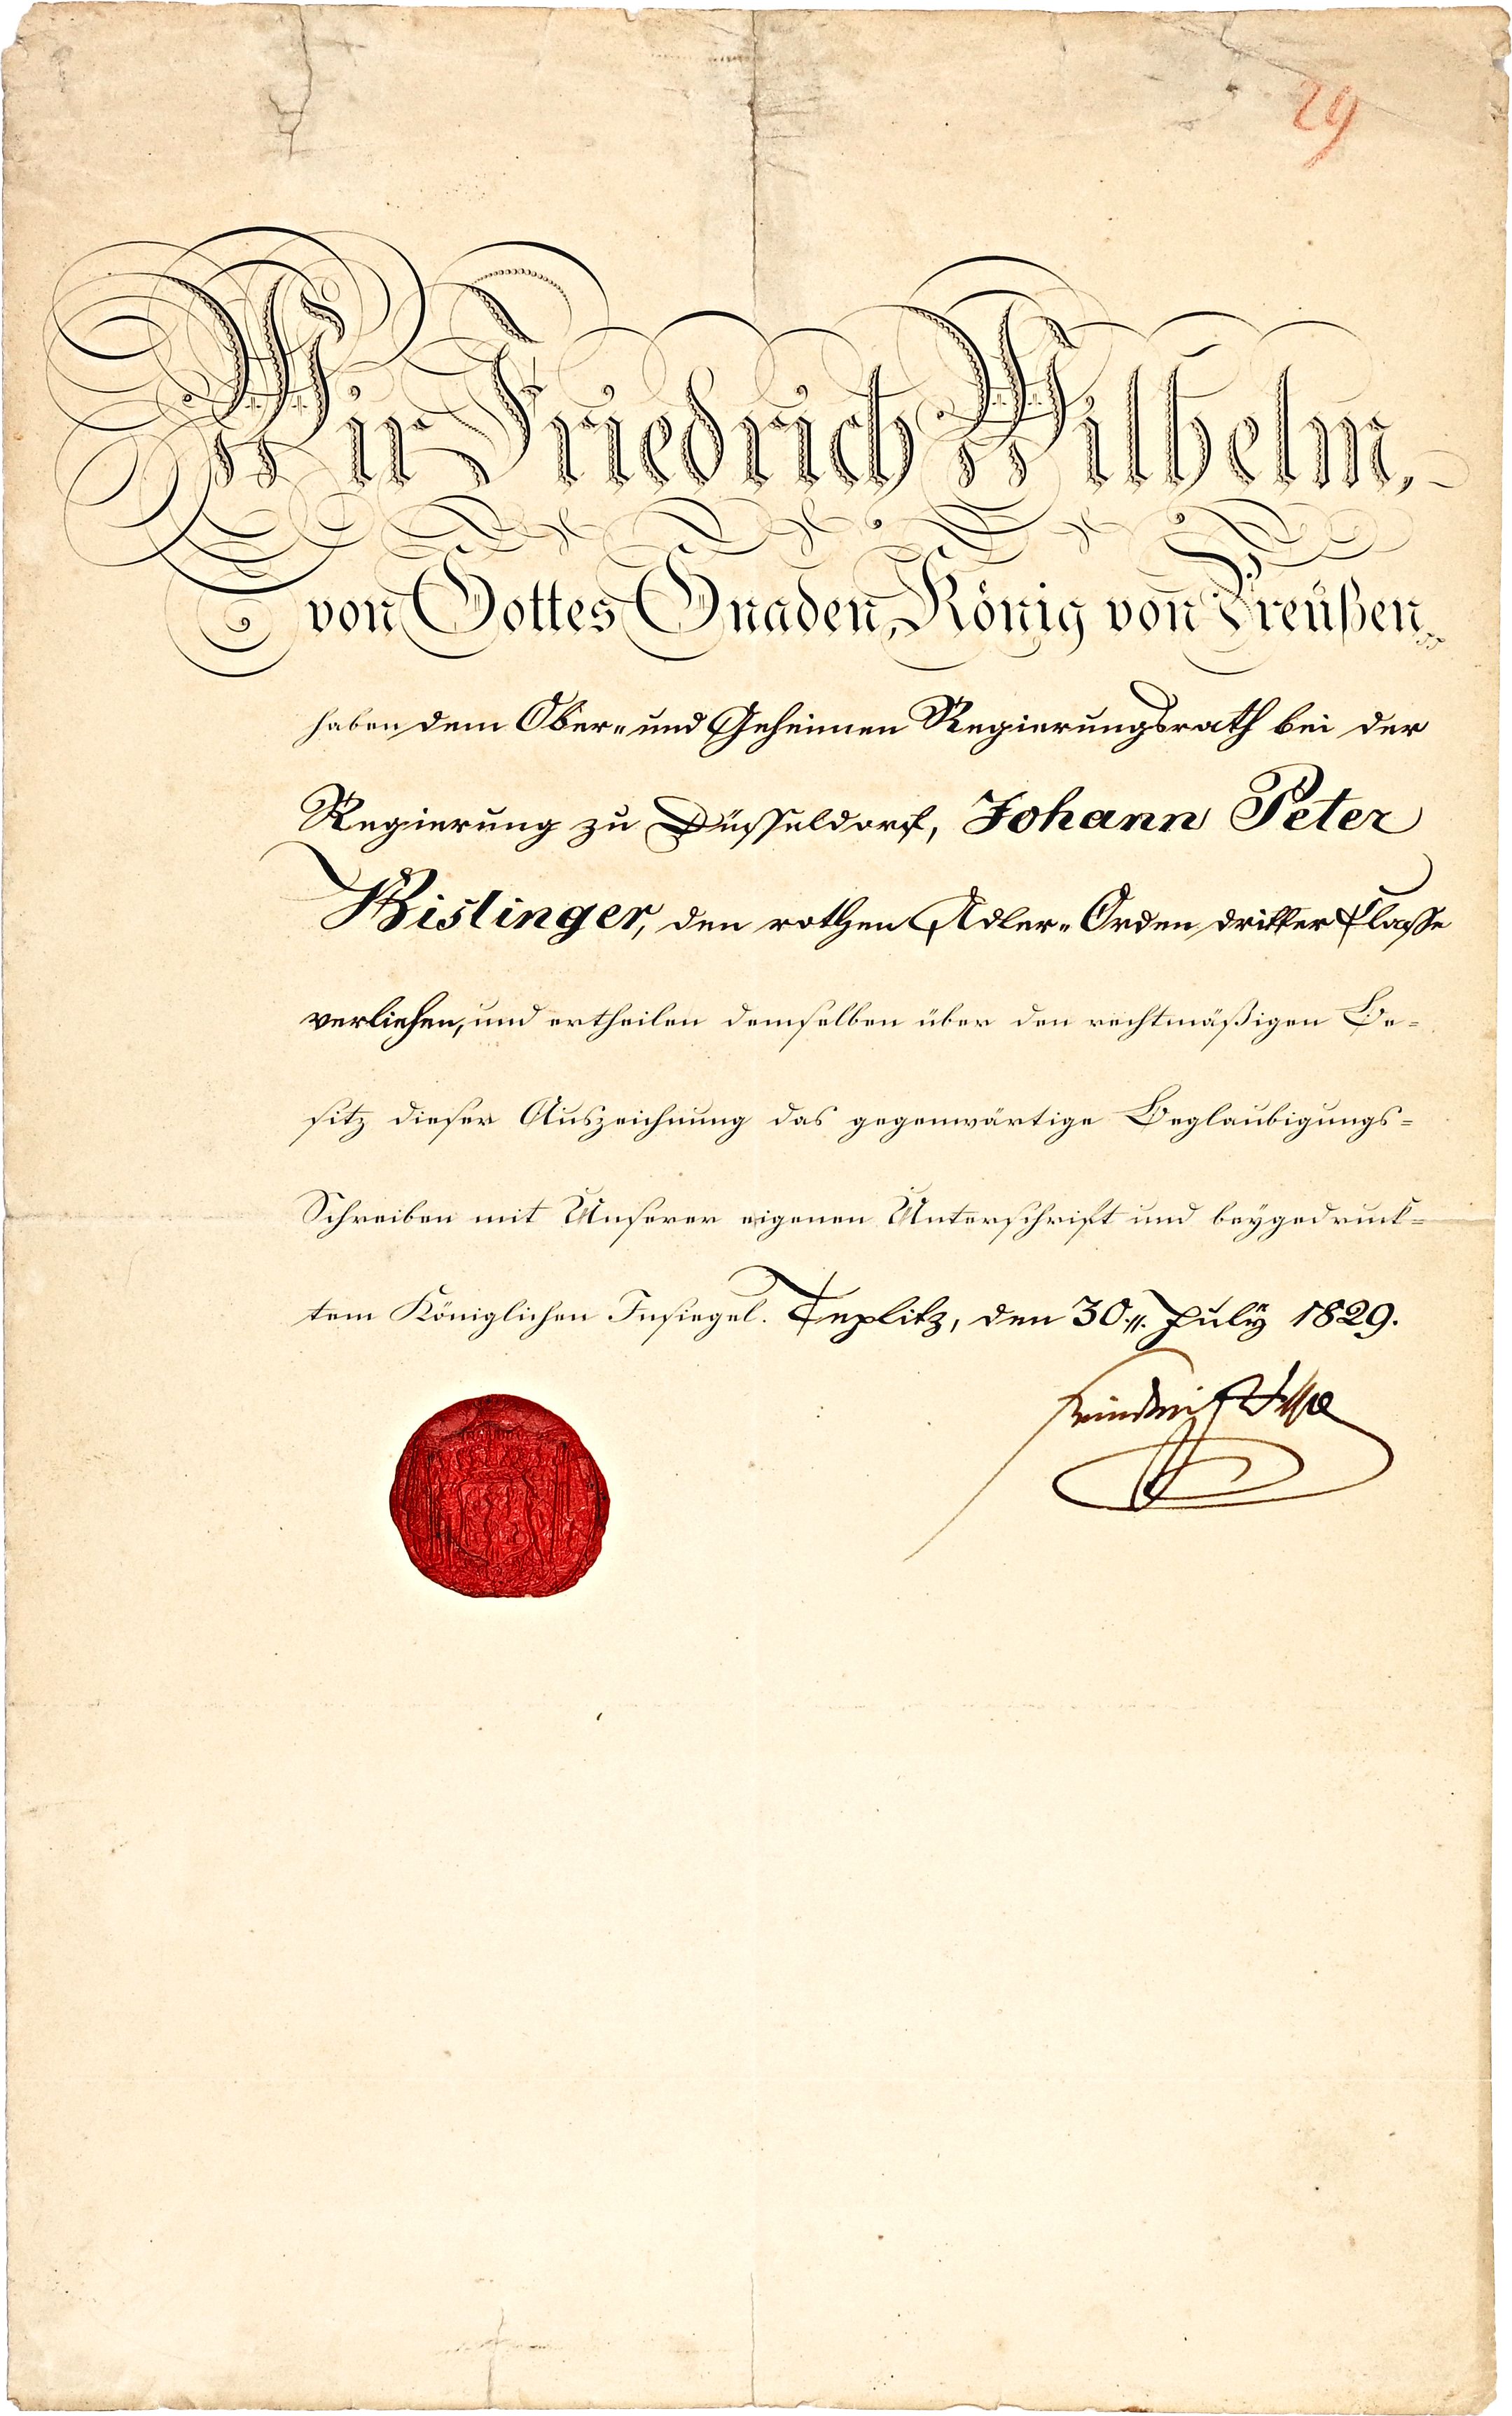 29
Wir Friedrich Wilhelm,
von Gottes Gnaden, König von Preußen
haben dem Ober- und Geheimen Regierungsrath bei der
Regierung zu Düsseldorf, Johann Peter
Bislinger, den rothen Adler-Orden dritter Classe
verliehen, und ertheilen demselben über den rechtmäßigen Be=
sitz dieser Auszeichnung das gegenwärtige Beglaubigungs=
Schreiben mit Unserer eigenen Unterschrift und beygedruck=
tem Königlichen Insiegel. Teplitz, den 30. July 1829.
Friedrich Wilhelm